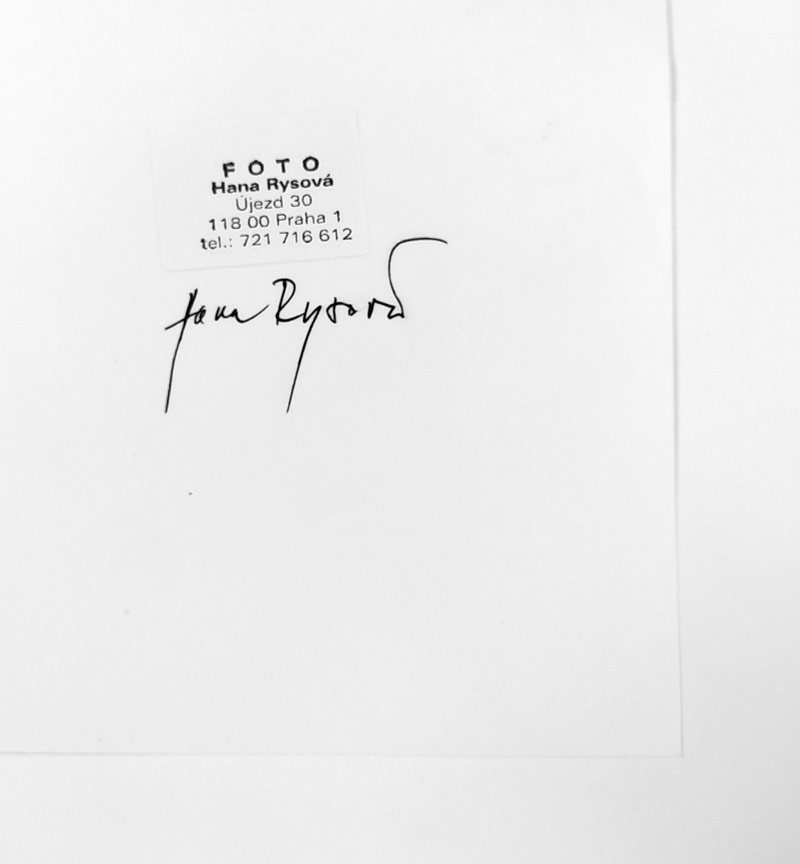 FOTO
Hana Rysová
Újezd 30
118 00 Praha 1
tel.: 721 716 612
Hana Rysová